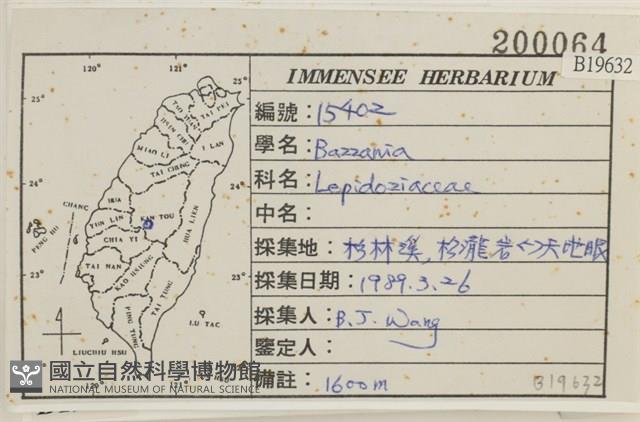 200064
B19632
IMMENSEE HERBARIUM
編號：15402
學名：Bazzania
科名：Lepidoziaceae
中名：
採集地：杉林溪，松瀧岩<->天地眼
採集日期：1989.3.26
採集人：B.J. Wang
鑒定人：
備註：1600m
B19632
120° 121°
25° 25°
24° 24°
23° 23°
120° 121°
TAO YUAN
TAI PEI
HSIN CHU
I LAN
MIAO LI
TAI CHUNG
CHANG HUA
NAN TOU
HUA LIEN
YUN LIN
PENG HU
CHIA YI
TAI NAN
KAO HSIUNG
TAI TUNG
PING TUNG
LU TAO
LIUCHIU HSU
國立自然科學博物館
NATIONAL MUSEUM OF NATURAL SCIENCE